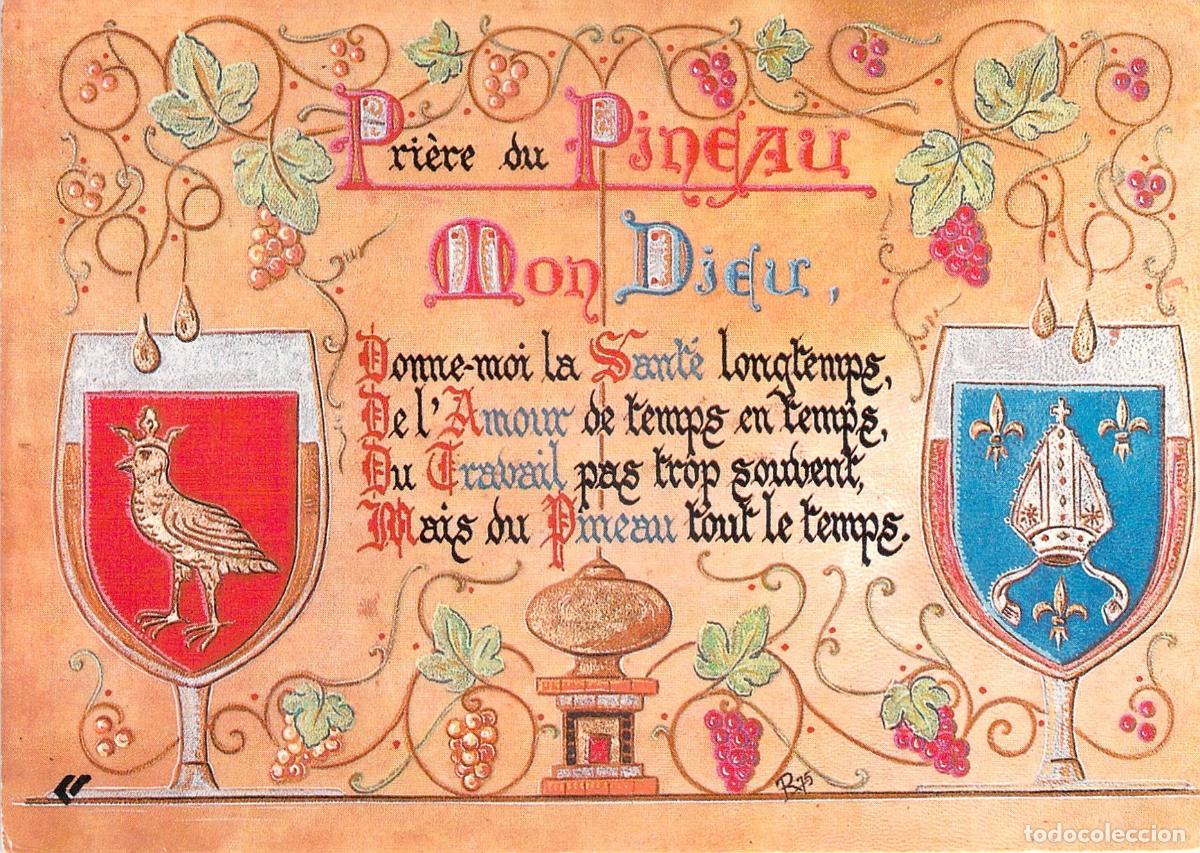 Prière du Pineau
Mon Dieu,
Donne-moi la Santé longtemps,
De l'Amour de temps en temps,
Du Travail pas trop souvent,
Mais du Pineau tout le temps.
R75
todocoleccion